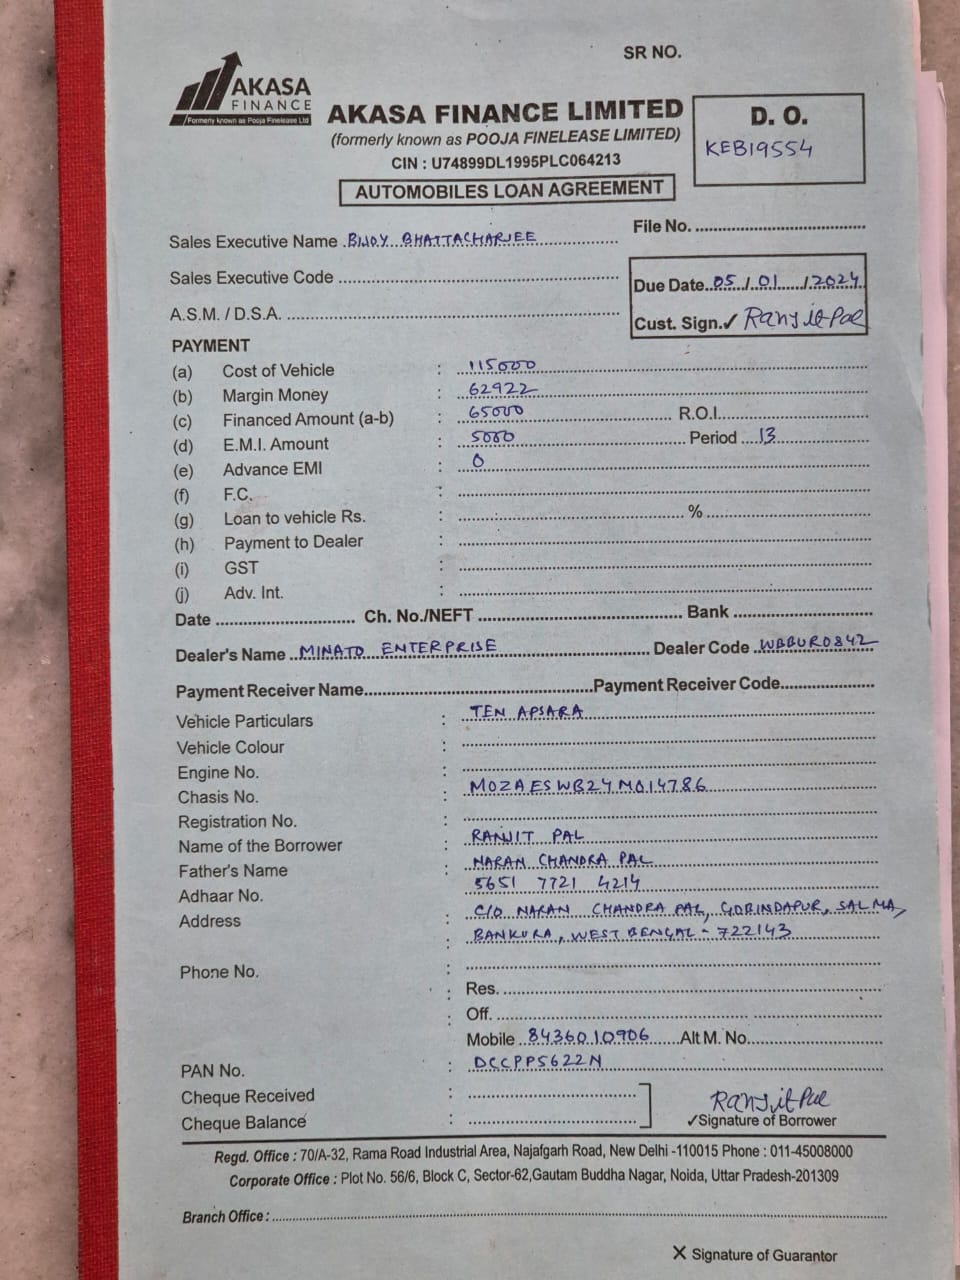 SR NO.
AKASA
FINANCE
Formerly known as Pooja Finelease Ltd
AKASA FINANCE LIMITED
(formerly known as POOJA FINELEASE LIMITED)
CIN : U74899DL1995PLC064213
AUTOMOBILES LOAN AGREEMENT
D. O.
KEB19554
Sales Executive Name BIJOY BHATTACHARJEE
File No.
Sales Executive Code
Due Date 05/01/2024
A.S.M. / D.S.A.
Cust. Sign.✓ Ranjit Pal
PAYMENT
(a) Cost of Vehicle : 115000
(b) Margin Money : 62922
(c) Financed Amount (a-b) : 65000 R.O.I.
(d) E.M.I. Amount : 5000 Period 13
(e) Advance EMI : 0
(f) F.C. :
(g) Loan to vehicle Rs. : %
(h) Payment to Dealer :
(i) GST :
(j) Adv. Int. :
Date Ch. No./NEFT Bank
Dealer's Name MINATO ENTERPRISE Dealer Code WBBUR0842
Payment Receiver Name Payment Receiver Code
Vehicle Particulars : TEN APSARA
Vehicle Colour :
Engine No. :
Chasis No. : MOZAESWB24MO14786
Registration No. :
Name of the Borrower : RANJIT PAL
Father's Name : NARAN CHANDRA PAL
Adhaar No. 5651 7721 4214
Address : C/O NARAN CHANDRA PAL, GOBINDAPUR, SALMA,
: BANKURA, WEST BENGAL - 722143
Phone No. :
: Res.
: Off.
Mobile 8436010906 Alt M. No.
PAN No. : DCCPP5622N
Cheque Received :
Cheque Balance :
Ranjit Pal
✓Signature of Borrower
Regd. Office : 70/A-32, Rama Road Industrial Area, Najafgarh Road, New Delhi -110015 Phone : 011-45008000
Corporate Office : Plot No. 56/6, Block C, Sector-62,Gautam Buddha Nagar, Noida, Uttar Pradesh-201309
Branch Office :
X Signature of Guarantor